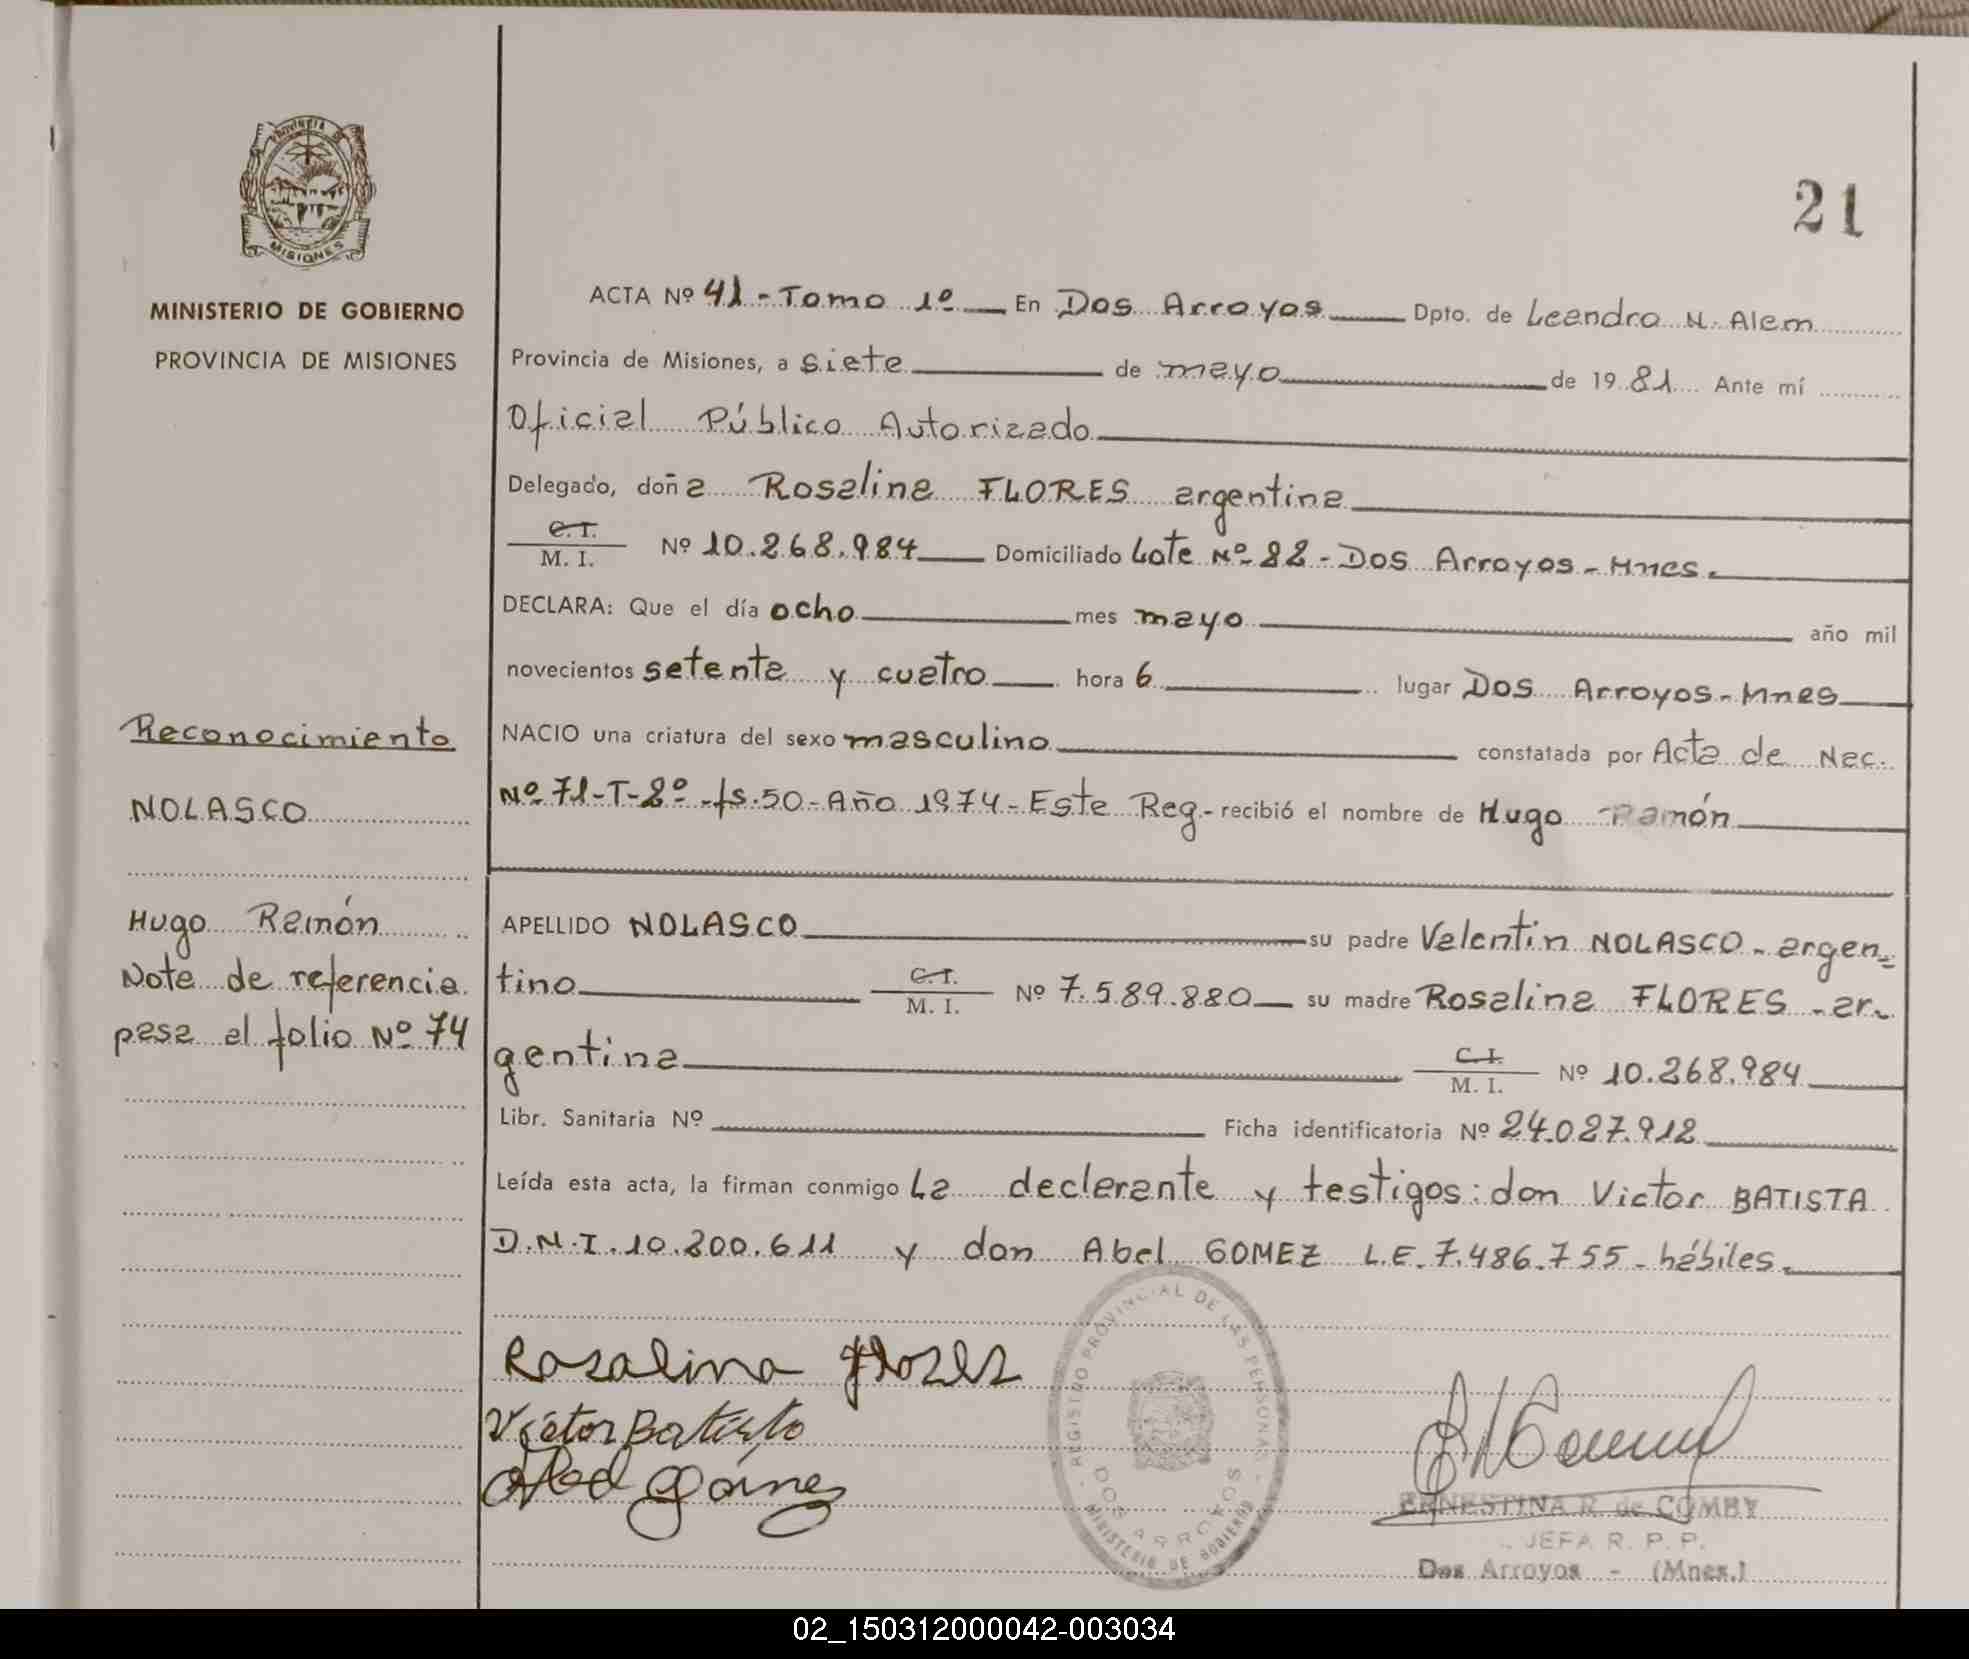 PROVINCIA DE
MISIONES
MINISTERIO DE GOBIERNO
PROVINCIA DE MISIONES
21
ACTA Nº 41 - Tomo 1º En Dos Arroyos Dpto. de Leandro N. Alem
Provincia de Misiones, a siete de mayo de 1981 Ante mí
Oficial Público Autorizado
Delegado, doña Rosalina FLORES argentina
C. I.
M. I. Nº 10.268.984 Domiciliado Lote Nº 82 - Dos Arroyos - Mnes.
DECLARA: Que el día ocho mes mayo año mil
novecientos setenta y cuatro hora 6 lugar Dos Arroyos - Mnes
NACIO una criatura del sexo masculino constatada por Acta de Nac.
Nº 71-T-2º-fs.50-Año 1974-Este Reg- recibió el nombre de Hugo Ramón
Reconocimiento
NOLASCO
Hugo Ramón
Nota de referencia
pasa al folio Nº 74
APELLIDO NOLASCO su padre Valentin NOLASCO - argen-
tino C. I. M. I. Nº 7.589.880 su madre Rosalina FLORES - ar-
gentina C. I. M. I. Nº 10.268.984
Libr. Sanitaria Nº Ficha identificatoria Nº 24.027.912
Leída esta acta, la firman conmigo La declarante y testigos: don Victor BATISTA
D.N.I. 10.200.611 y don Abel GOMEZ L.E. 7.486.755 - hábiles.
Rosalina Flores
Victor Batisto
Abel Gómez
REGISTRO PROVINCIAL DE LAS PERSONAS
DOS ARROYOS
MINISTERIO DE GOBIERNO
ERNESTINA R. de COMBY
JEFA R. P. P.
Dos Arroyos - (Mnes.)
02_150312000042-003034